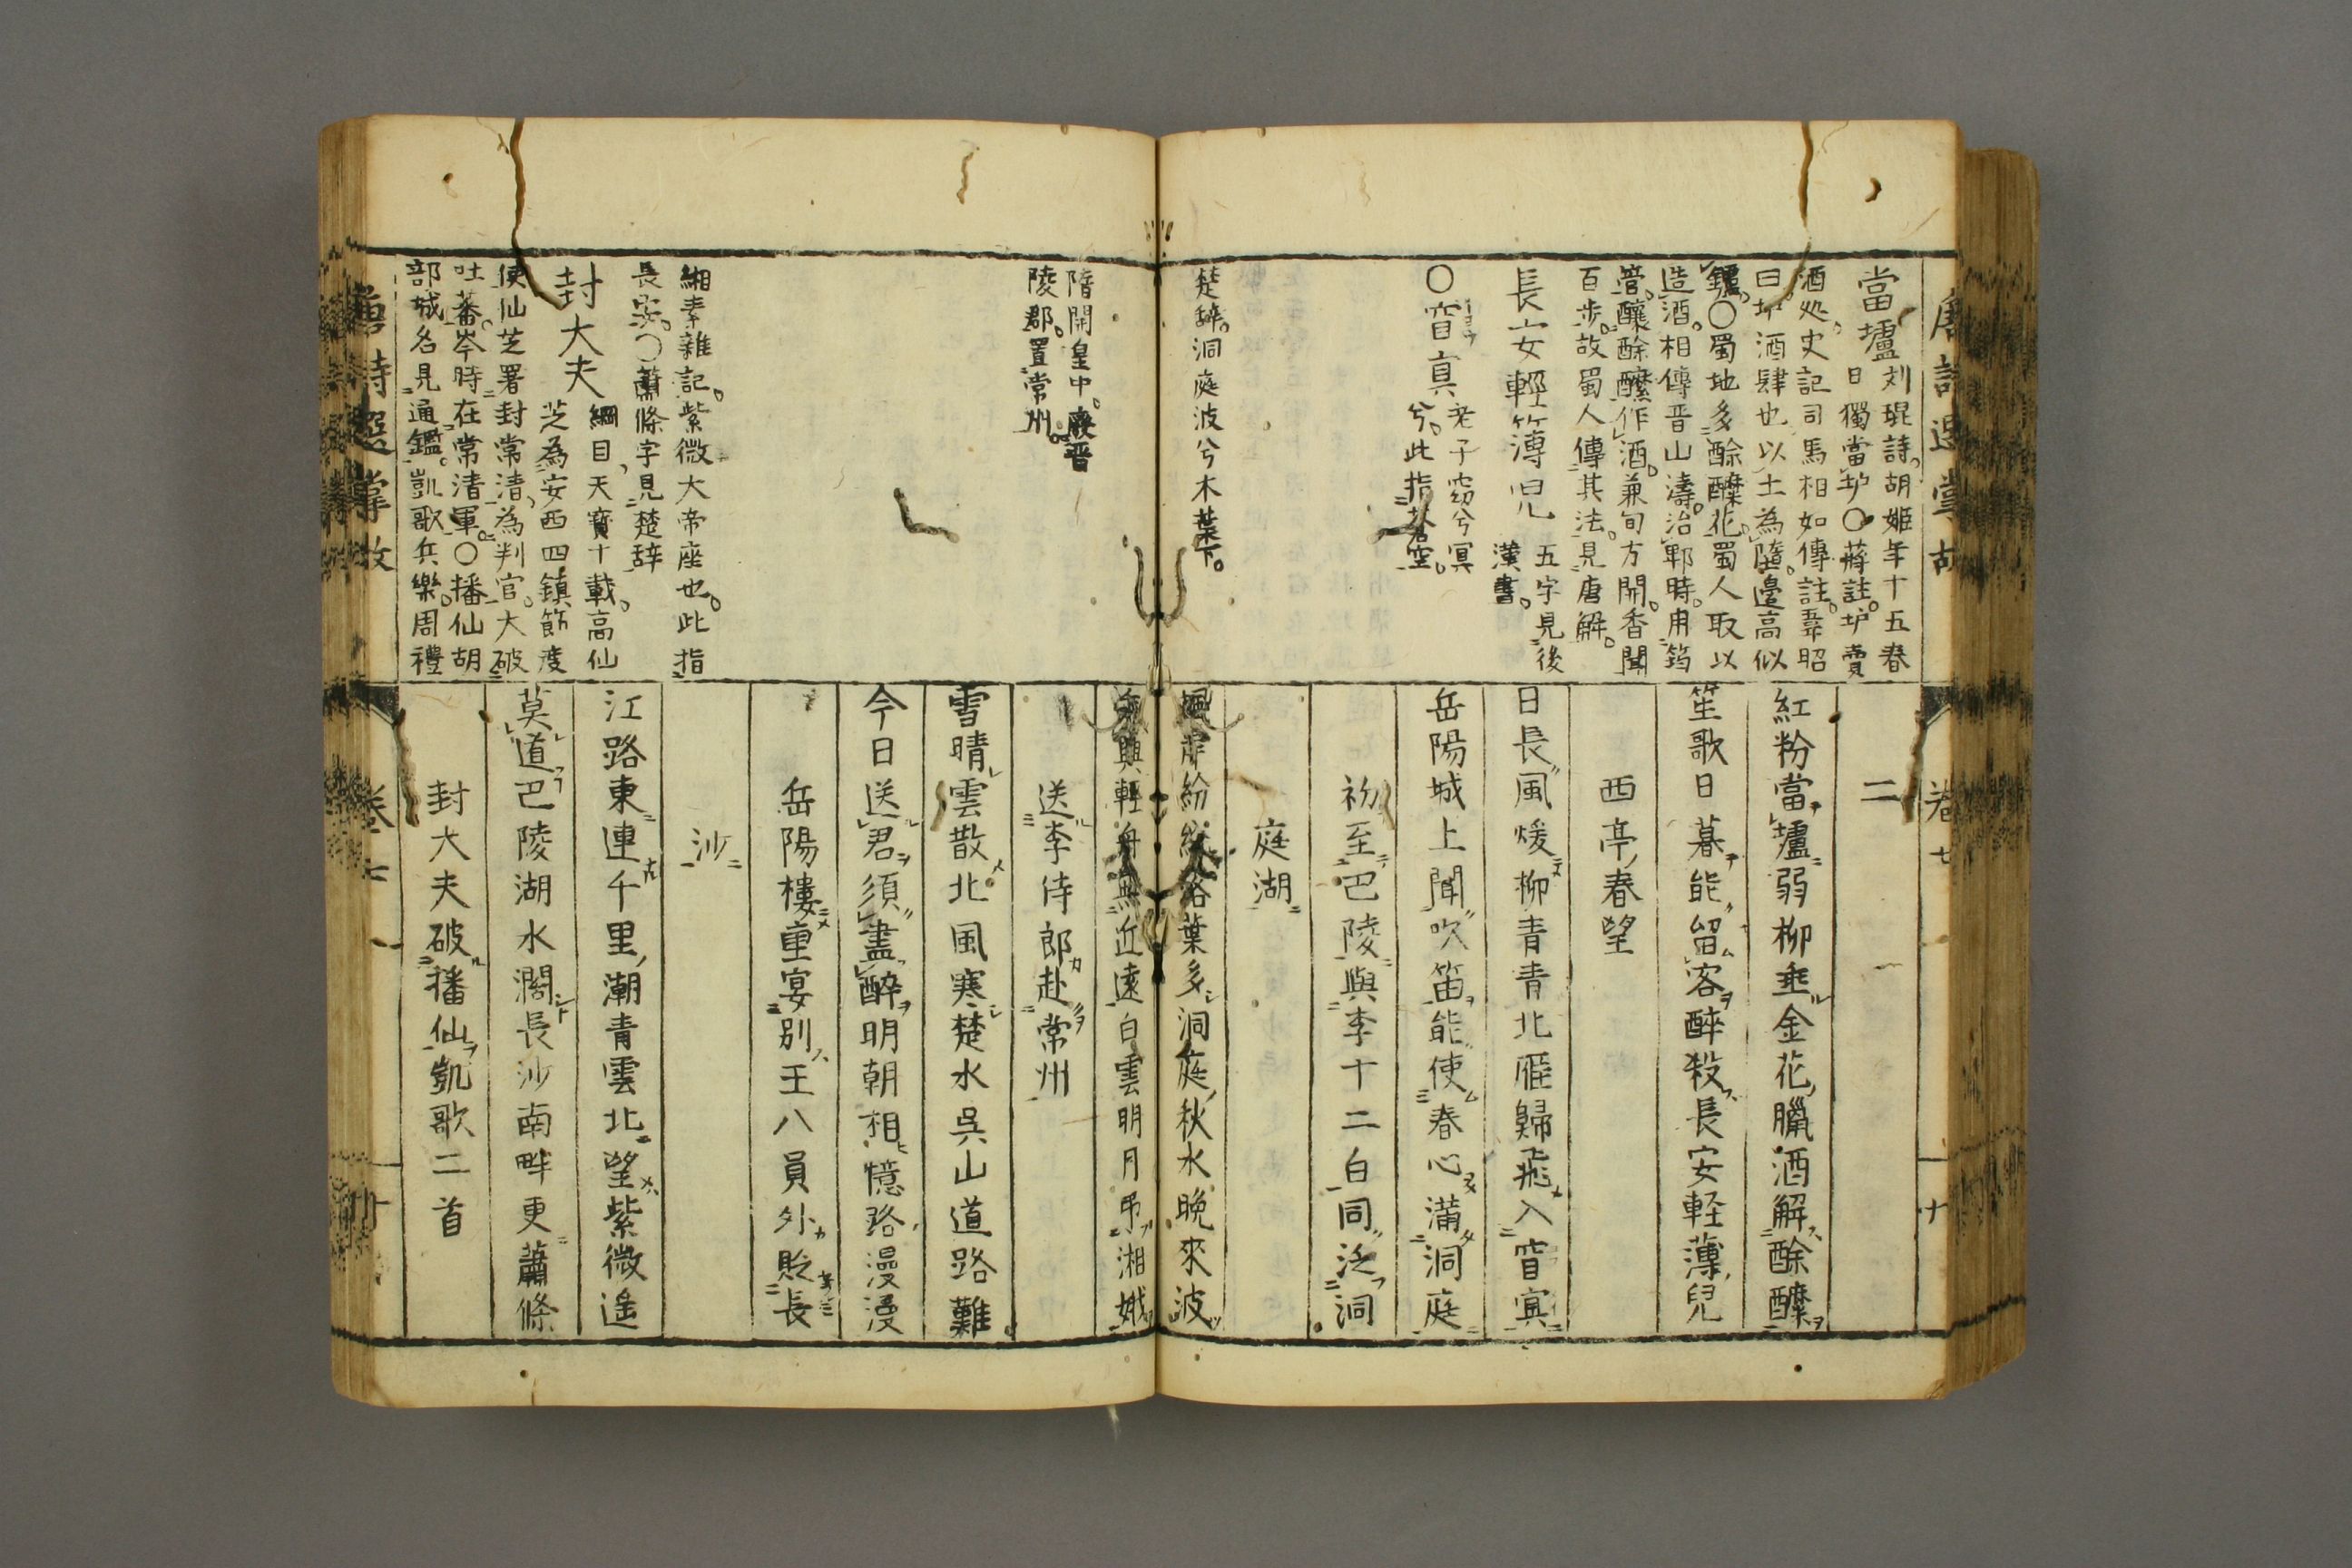 當壚 刘琨詩。胡姬年十五春
日獨當垆〇蔣註。垆賣
酒処。史記司馬相如傳註。韋昭
曰。垆酒肆也以土為墮。邉高似
鑪。〇蜀地多酴醾花。蜀人取以
造酒。相傳晋山濤。治郫時。用筠
管。釀酴醾作酒。兼旬方開。香聞
百步。故蜀人傳其法。見唐解。
長安輕簿児 五字見後
漢書。
〇窅寘 老子窈兮冥
兮。此指蒼空。
楚辞。洞庭波兮木葉下。
二
紅粉當壚弱柳垂金花臘酒解酴醾
笙歌日暮能留客醉殺長安軽薄兒
西亭春望
日長風煖柳青青北雁歸飛入窅寘
岳陽城上聞吹笛能使春心滿洞庭
初至巴陵與李十二白同泛洞
庭湖
楓岸紛紛落葉多洞庭秋水晚來波
唐詩選掌故
卷七
十
隋開皇中。廢晋
陵郡。置常州。
緗素雜記。紫微大帝座也。此指
長安。〇蕭條字見楚辞
封大夫 綱目天寳十載。高仙
芝為安西四鎮節度
使仙芝署封常清。為判官。大破
吐蕃。岑時在常清軍。〇播仙胡
部城名見通鑑。凱歌兵樂。周禮
乗興輕舟無近遠白雲明月吊湘娥
送李侍郎赴常州
雪晴雲散北風寒楚水呉山道路難
今日送君須盡醉明朝相憶路漫漫
岳陽樓重宴別王八員外貶長
沙
江路東連千里潮青雲北望紫微遙
莫道巴陵湖水濶長沙南畔更蕭條
封大夫破播仙凱歌二首
唐詩選掌故
卷七